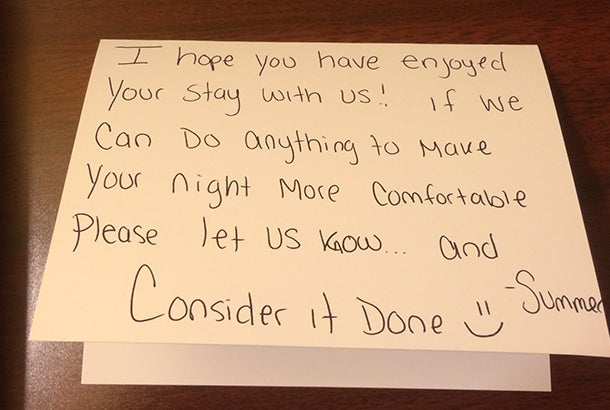 I hope you have enjoyed
Your Stay with us! if we
Can Do anything to Make
Your night More Comfortable
Please let US Know... and
Consider it Done
-Summer